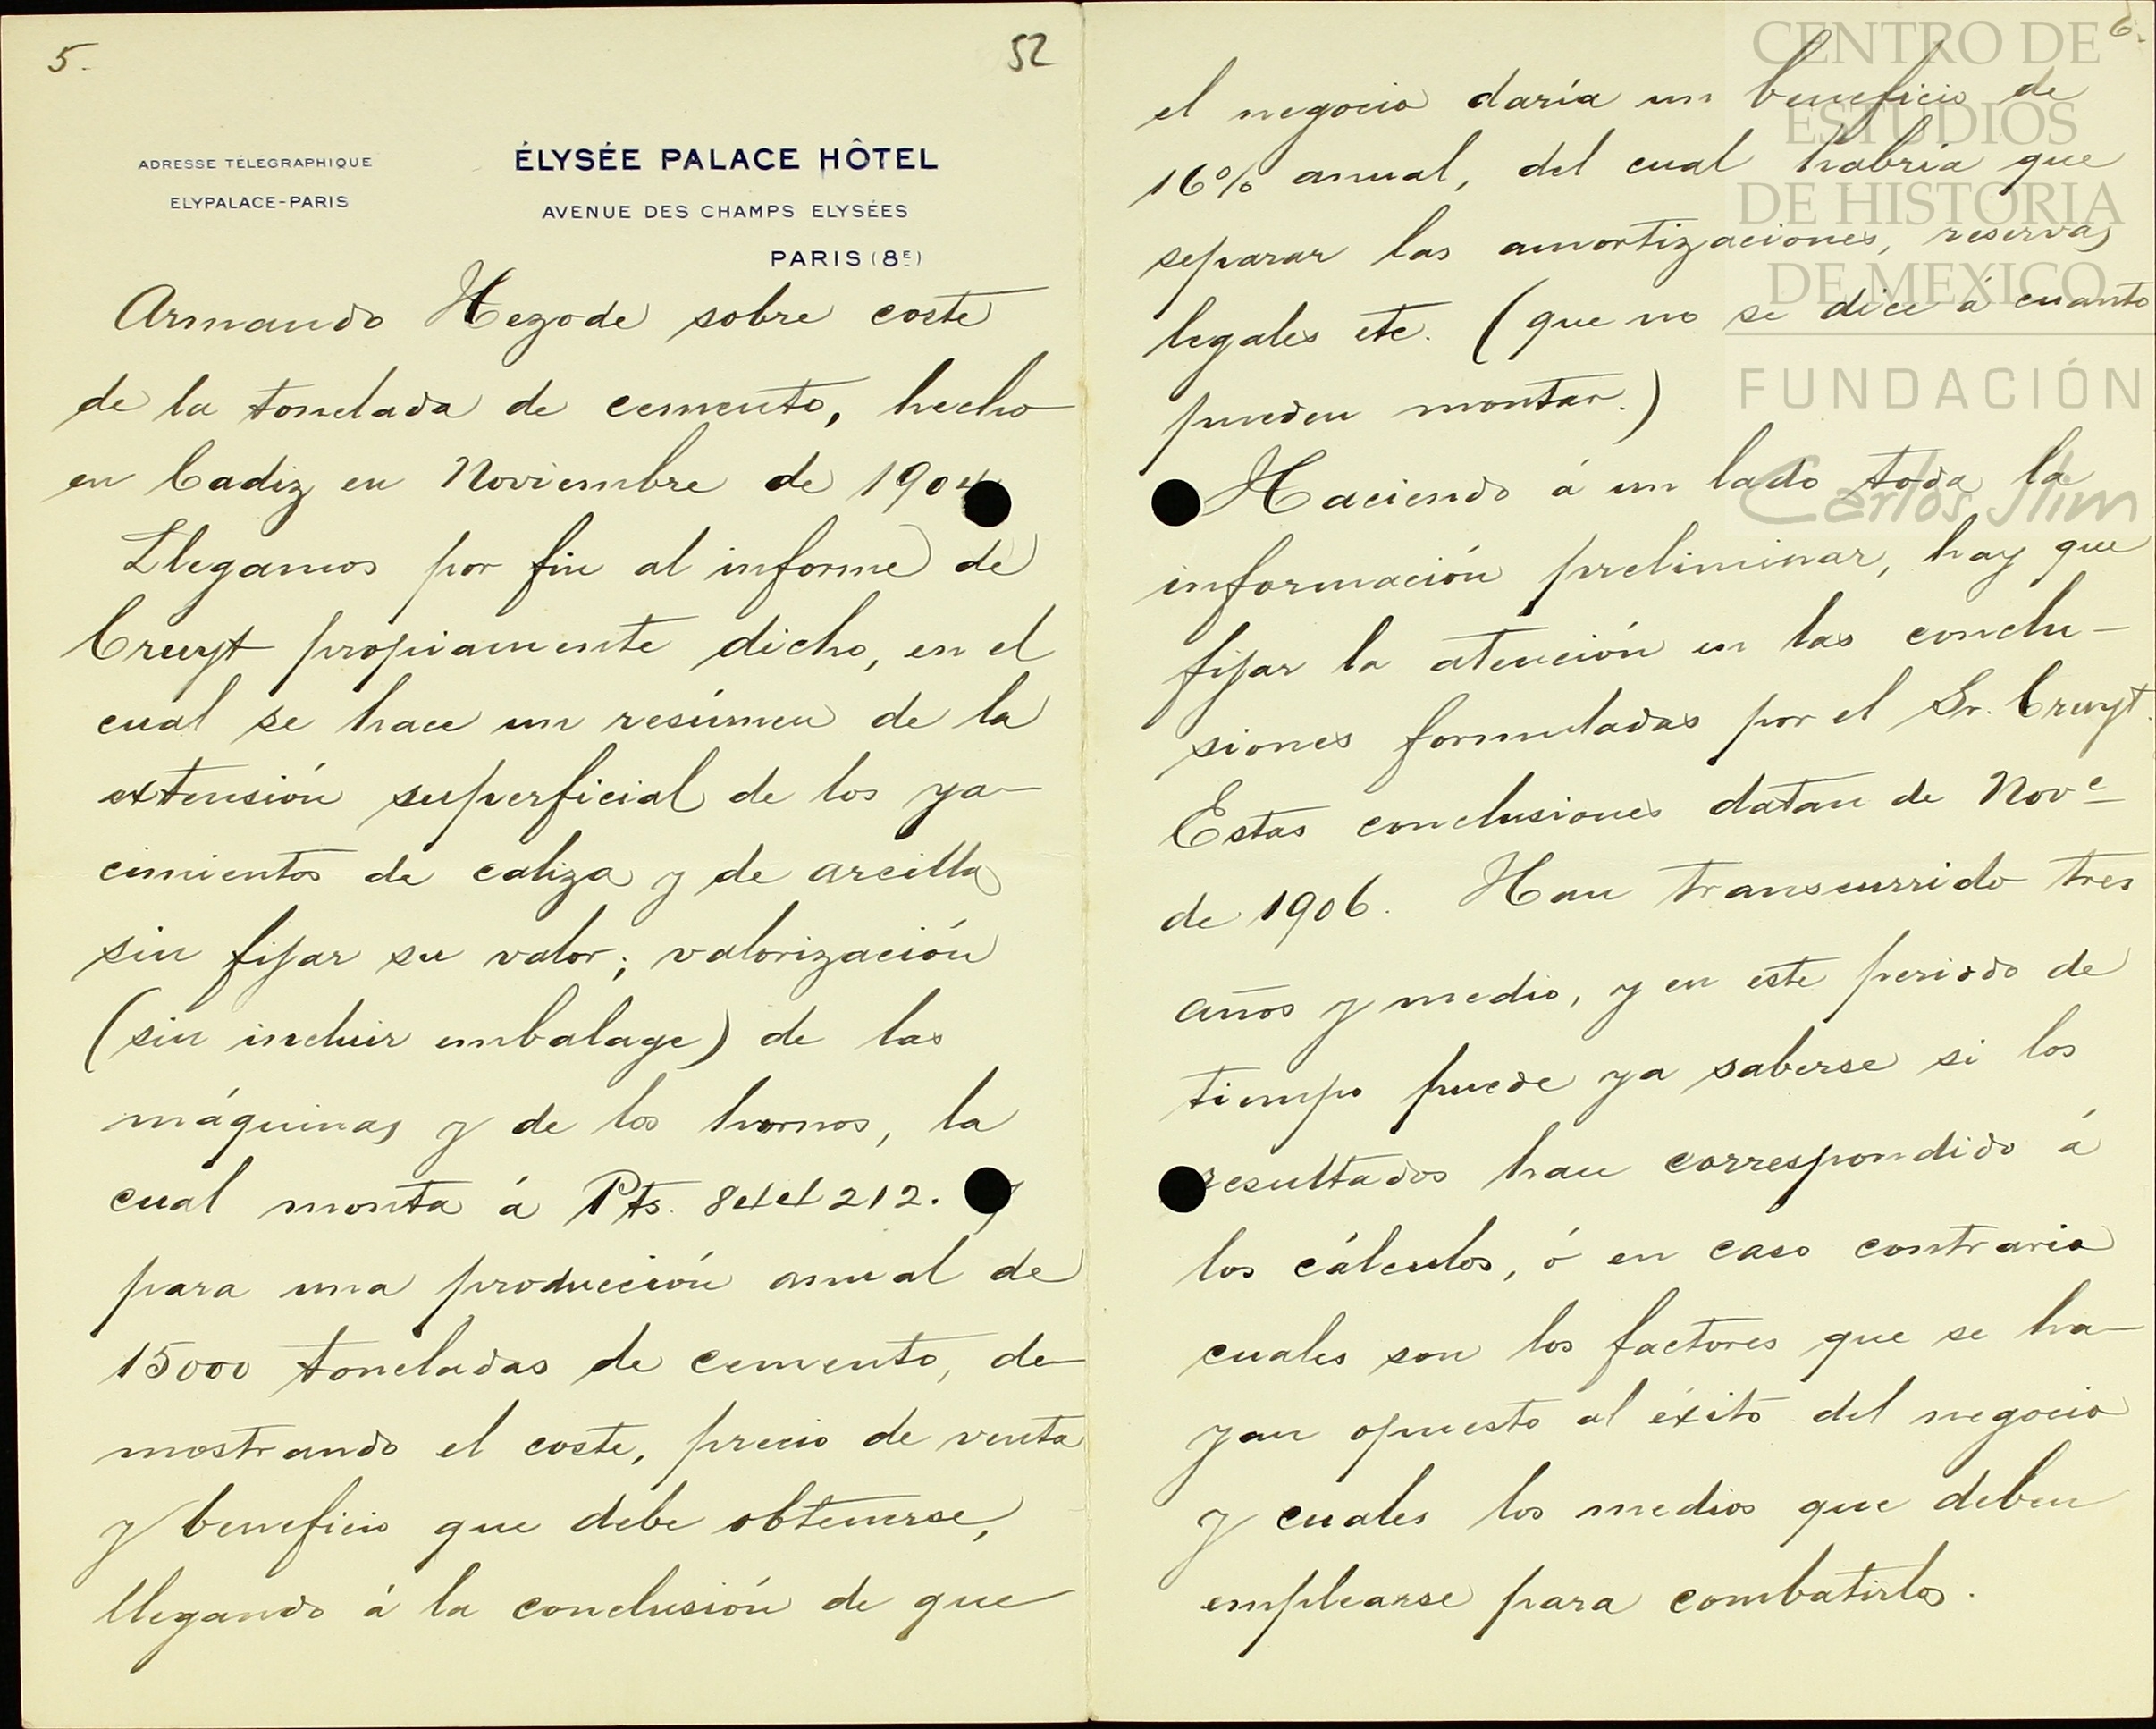 5.
52
ADRESSE TÉLÉGRAPHIQUE
ELYPALACE-PARIS
ÉLYSÉE PALACE HÔTEL
AVENUE DES CHAMPS ELYSÉES
PARIS (8E)
Armando Hezode sobre coste
de la tonelada de cemento, hecho
en Cadiz en Noviembre de 1904
Llegamos por fin al informe de
Cruyt propiamente dicho, en el
cual se hace un resúmen de la
extensión superficial de los ya-
cimientos de caliza y de arcilla
sin fijar su valor; valorización
(sin incluir embalage) de las
máquinas y de los hornos, la
cual monta á Pts. 844212. y
para una producción anual de
15000 toneladas de cemento, de-
mostrando el coste, precio de venta
y beneficio que debe obtenerse,
llegando á la conclusión de que
6.
el negocio daría un beneficio de
16% anual, del cual habría que
separar las amortizaciones, reservas
legales etc. (que no se dice á cuanto
pueden montar.)
Haciendo á un lado toda la
información preliminar, hay que
fijar la atención en las conclu-
siones formuladas por el Sr. Cruyt.
Estas conclusiones datan de Nove
de 1906. Han transcurrido tres
años y medio, y en este periodo de
tiempo puede ya saberse si los
resultados han correspondido á
los cálculos, ó en caso contrario
cuales son los factores que se ha-
yan opuesto al éxito del negocio
y cuales los medios que deben
emplearse para combatirlos.
CENTRO DE
ESTUDIOS
DE HISTORIA
DE MEXICO
FUNDACIÓN
Carlos Slim